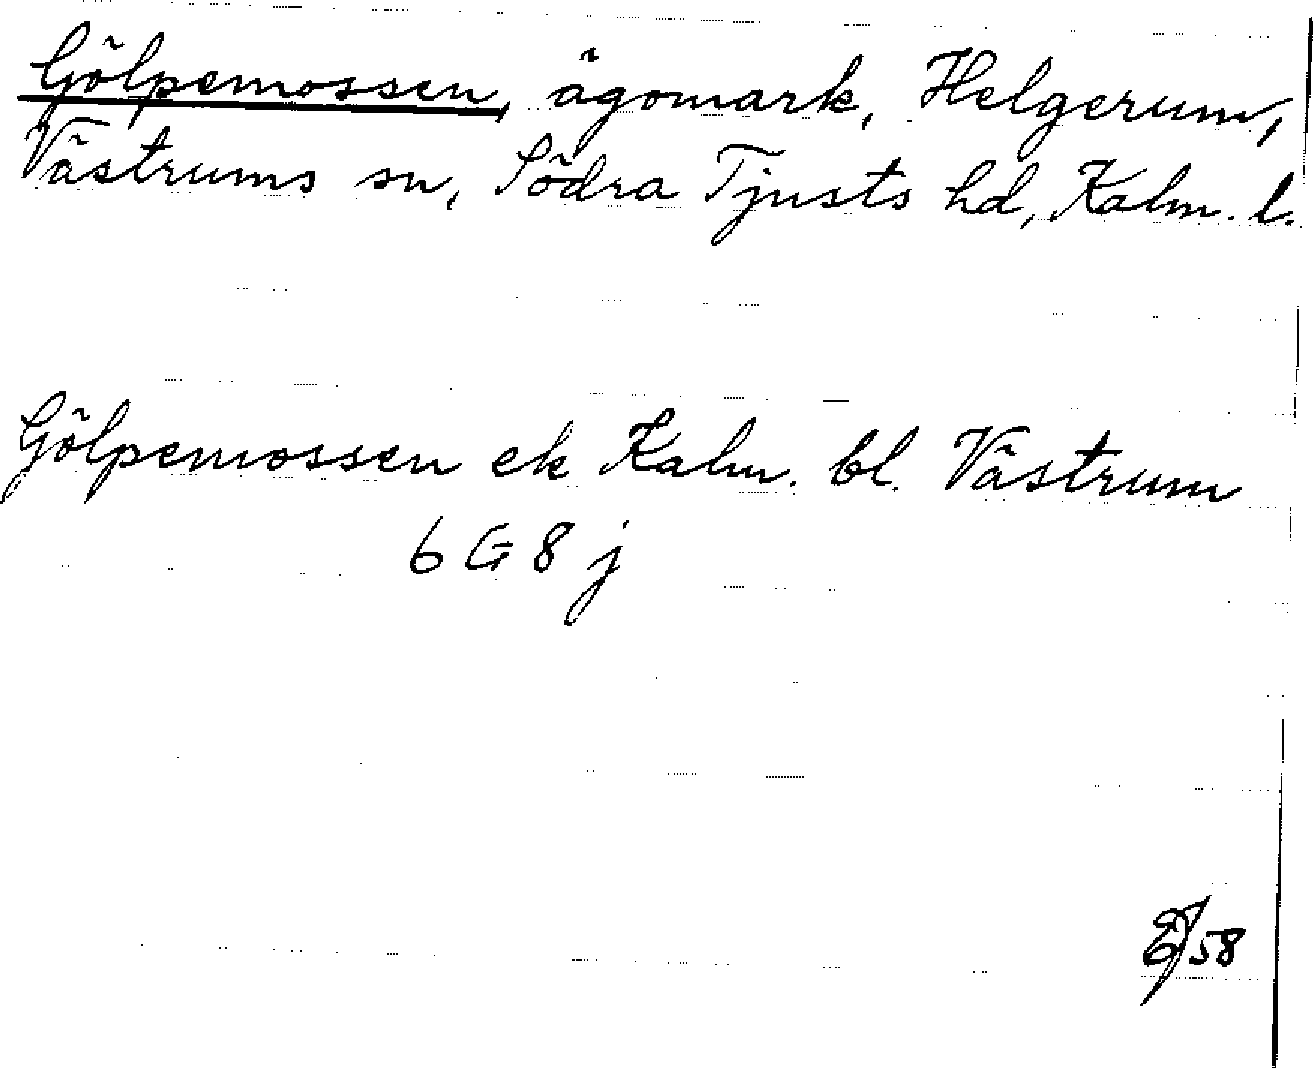 Gölpemossen, ägomark, Helgerum,
Västrums sn, Södra Tjusts hd, Kalm. l.
Gölpemossen ek Kalm. bl. Västrum
6 G 8 j
58